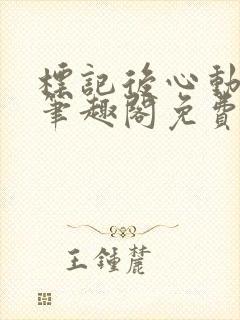 標記後心動
筆趣閣免費
王鍾麓